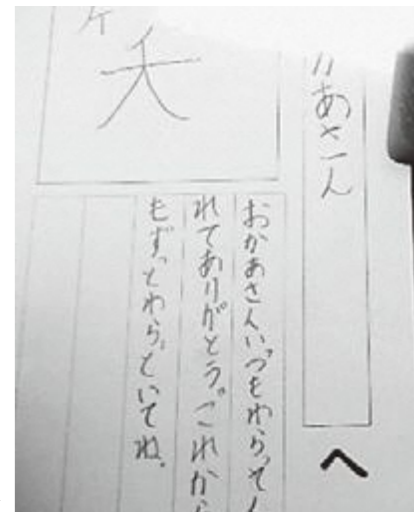 あさんへ
笑
おかあさんいつもわらってく
れてありがとう。これから
もずっとわらっていてね。